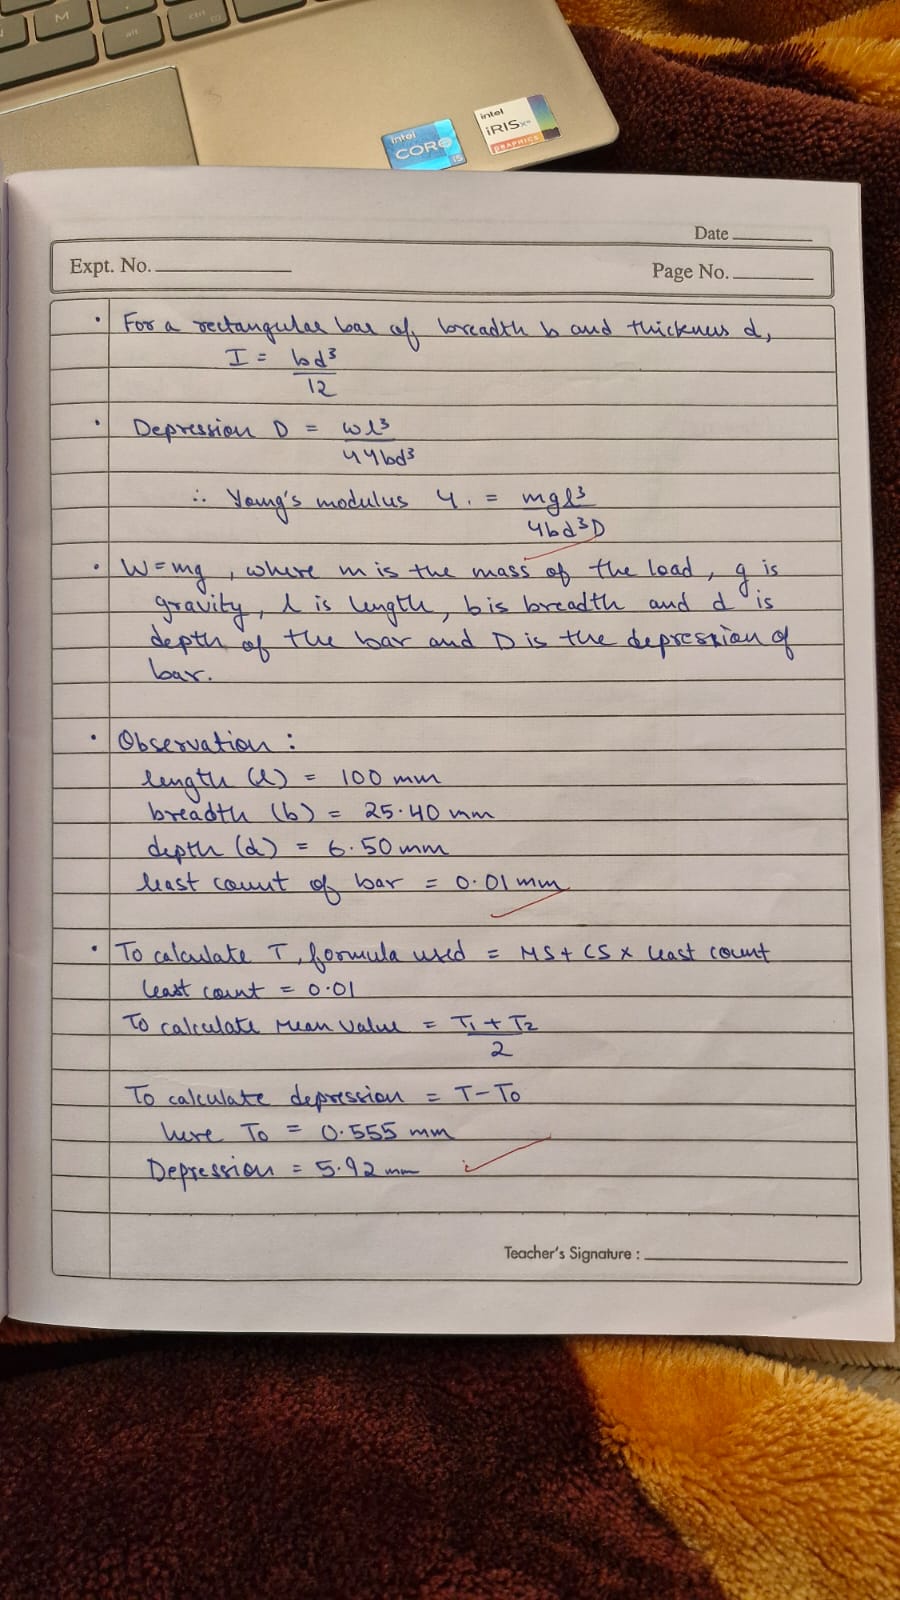 M
ctrl
alt
intel
CORE
i5
intel
iRISxe
GRAPHICS
Date
Expt. No.
Page No.
• For a rectangular bar of breadth b and thickness d,
I = bd³
12
• Depression D = wl³
4Ybd³
∴ Young's modulus Y. = mgl³
4bd³D
• W=mg, where m is the mass of the load, g is
gravity, l is length, b is breadth and d is
depth of the bar and D is the depression of
bar.
• Observation :
length (l) = 100 mm
breadth (b) = 25.40 mm
depth (d) = 6.50 mm
least count of bar = 0.01 mm
• To calculate T, formula used = MS + CS x least count
least count = 0.01
To calculate mean value = T₁ + T₂
2
To calculate depression = T-To
here To = 0.555 mm
Depression = 5.92 mm
Teacher's Signature :